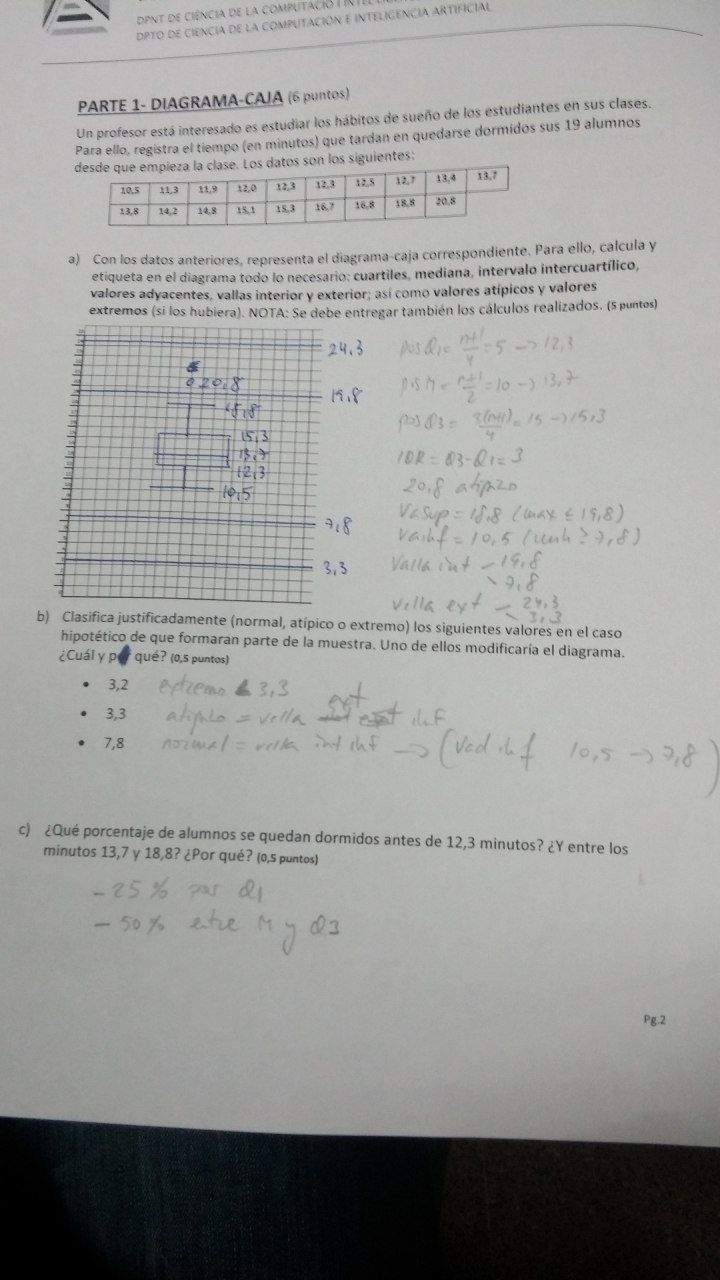 DPNT DE CIÈNCIA DE LA COMPUTACIÓ I
DPTO DE CIENCIA DE LA COMPUTACIÓN E INTELIGENCIA ARTIFICIAL
PARTE 1- DIAGRAMA-CAJA (6 puntos)
Un profesor está interesado es estudiar los hábitos de sueño de los estudiantes en sus clases.
Para ello, registra el tiempo (en minutos) que tardan en quedarse dormidos sus 19 alumnos
desde que empieza la clase. Los datos son los siguientes:
10,5 11,3 11,9 12,0 12,3 12,3 12,5 12,7 13,4 13,7
13,8 14,2 14,8 15,1 15,3 16,7 16,8 18,8 20,8
a) Con los datos anteriores, representa el diagrama-caja correspondiente. Para ello, calcula y
etiqueta en el diagrama todo lo necesario: cuartiles, mediana, intervalo intercuartílico,
valores adyacentes, vallas interior y exterior; así como valores atípicos y valores
extremos (si los hubiera). NOTA: Se debe entregar también los cálculos realizados. (5 puntos)
24,3
20,8
19,8
18,8
15,3
13,7
12,3
10,5
7,8
3,3
pos Q1 = n+1/4 = 5 -> 12,3
pos M = n+1/2 = 10 -> 13,7
pos Q3 = 3(n+1)/4 = 15 -> 15,3
IQR = Q3-Q1 = 3
20,8 atípico
Vasup = 18,8 (max ≤ 19,8)
Vainf = 10,5 (min ≥ 7,8)
Valla int - 19,8
7,8
valla ext - 24,3
3,3
b) Clasifica justificadamente (normal, atípico o extremo) los siguientes valores en el caso
hipotético de que formaran parte de la muestra. Uno de ellos modificaría el diagrama.
¿Cuál y por qué? (0,5 puntos)
• 3,2 extremo < 3,3
• 3,3 atípico = valla ext inf
• 7,8 normal = valla int inf -> (Vad inf 10,5 -> 7,8)
c) ¿Qué porcentaje de alumnos se quedan dormidos antes de 12,3 minutos? ¿Y entre los
minutos 13,7 y 18,8? ¿Por qué? (0,5 puntos)
- 25 % por Q1
- 50 % entre M y Q3
Pg.2